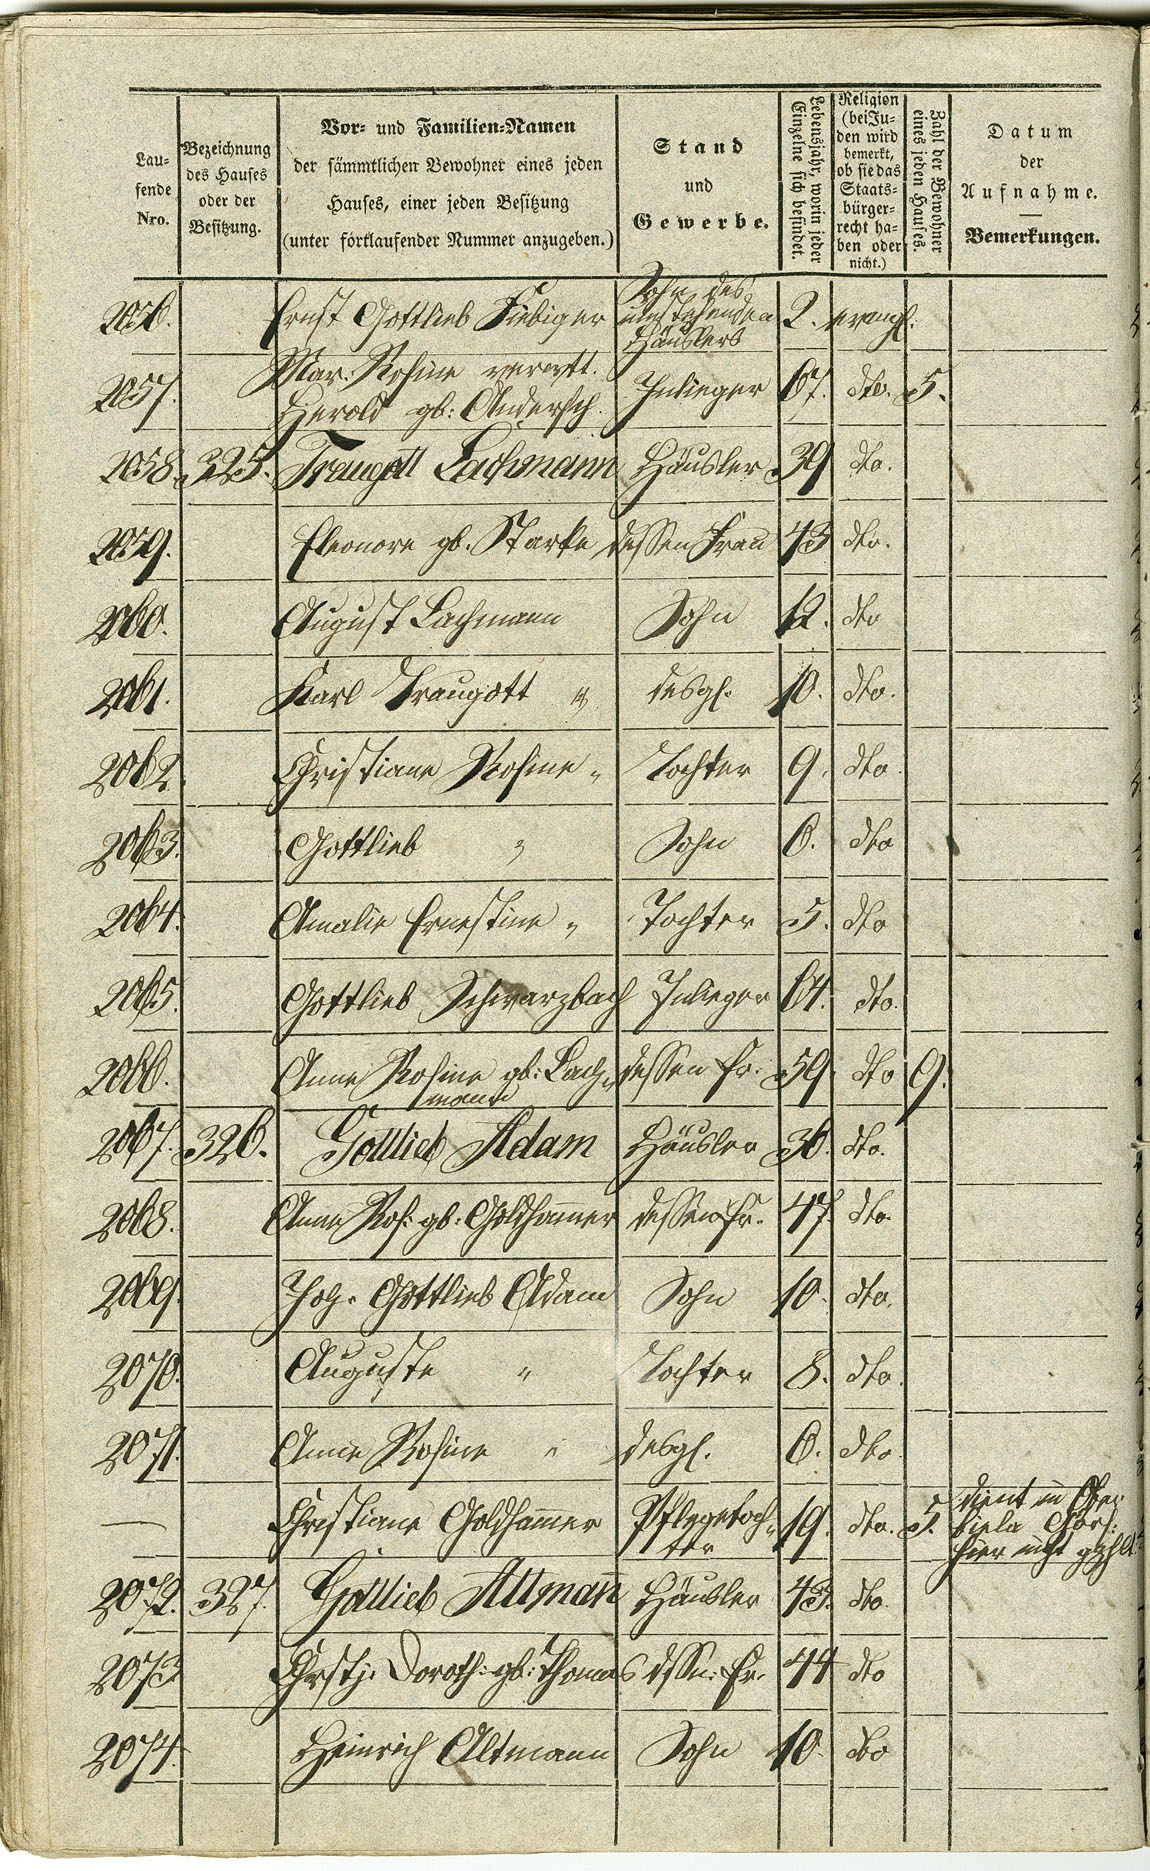 Lau-
fende
Nro.
Bezeichnung
des Hauses
oder der
Besitzung.
Vor- und Familien-Namen
der sämmtlichen Bewohner eines jeden
Hauses, einer jeden Besitzung
(unter fortlaufender Nummer anzugeben.)
Stand
und
Gewerbe.
Lebensjahr, worin jeder
Einzelne sich befindet.
Religion
(bei Ju-
den wird
bemerkt,
ob sie das
Staats-
bürger-
recht ha-
ben oder
nicht.)
Zahl der Bewohner
eines jeden Hauses.
Datum
der
Aufnahme.
Bemerkungen.
Sohn des
2056. Ernst Gottlieb Fiebiger umstehenden 2. evangl.
Häuslers
Mar. Rosine verwtt.
2057. Herold gb: Andersch. Inlieger 67. dto. 5.
2058. 325. Traugott Lachmann Häusler 39 dto.
2059. Eleonore gb. Starke dessen Frau 43 dto.
2060. August Lachmann Sohn 12. dto
2061. Karl Traugott " desgl. 10. dto.
2062. Christiane Rosine " Tochter 9. dto.
2063. Gottlieb " Sohn 6. dto
2064. Amalie Ernestine " Tochter 5. dto
2065. Gottlieb Schwarzbach Inlieger 64. dto.
2066. Anne Rosine gb: Lach- dessen Fr. 59. dto 9.
mann
2067. 326. Gottlieb Adam Häusler 36. dto.
2068. Anne Ros: gb: Goldhammer dessen Fr. 47. dto.
2069. Joh. Gottlieb Adam Sohn 10. dto.
2070. Auguste " Tochter 8. dto.
2071. Anne Rosine " desgl. 6. dto.
— Christiane Goldhammer Pflegetoch- 19. dto. 5. dient in Ober
ter
hier nicht gezhlt
2072. 327. Gottlieb Altmann Häusler 43. dto.
2073. Christ. Doroth: gb: Thomas dssn: Fr. 44 dto
2074. Heinrich Altmann Sohn 10. dto